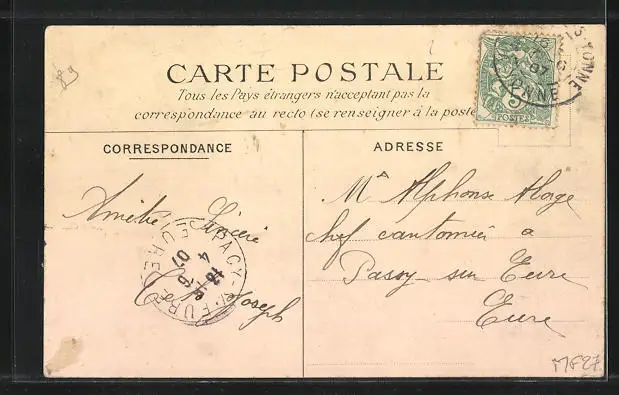 89
CARTE POSTALE
Tous les Pays étrangers n'acceptant pas la
correspondance au recto (se renseigner à la poste
5
POSTES
07
YONNE
CORRESPONDANCE
ADRESSE
Amitié Sincère
Joseph
PACY-S-EURE
EURE
13
4
6
07
Mr Alphonse
chef cantonnier a
Passy sur Eure
Eure
MF27